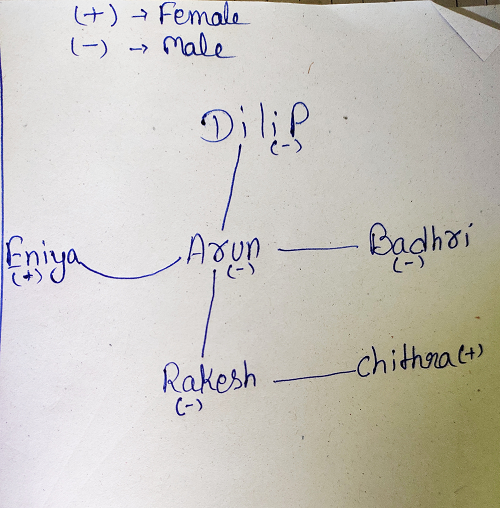 (+) → Female
(-) → Male
DiliP
(-)
Eniya Arun Badhri
(+) (-) (-)
Rakesh chithra (+)
(-)